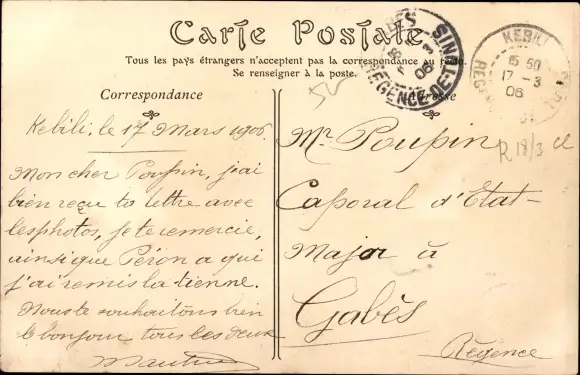 Carte Postale
Tous les pays étrangers n'acceptent pas la correspondance au recto.
Se renseigner à la poste.
Correspondance
Adresse
GABÈS
3
06
RÉGENCE-DE-TUNIS
KEBILI
15 50
17 - 3
06
R 18/3
Kebili, le 17 Mars 1906.
Mon cher Poupin, j'ai
bien reçu ta lettre avec
les photos, je te remercie,
ainsi que Péron a qui
j'ai remis la tienne.
Nous te souhaitons bien
le bonjour tous les deux
Mr Poupin
Caporal d'Etat-
Major à
Gabès
Régence